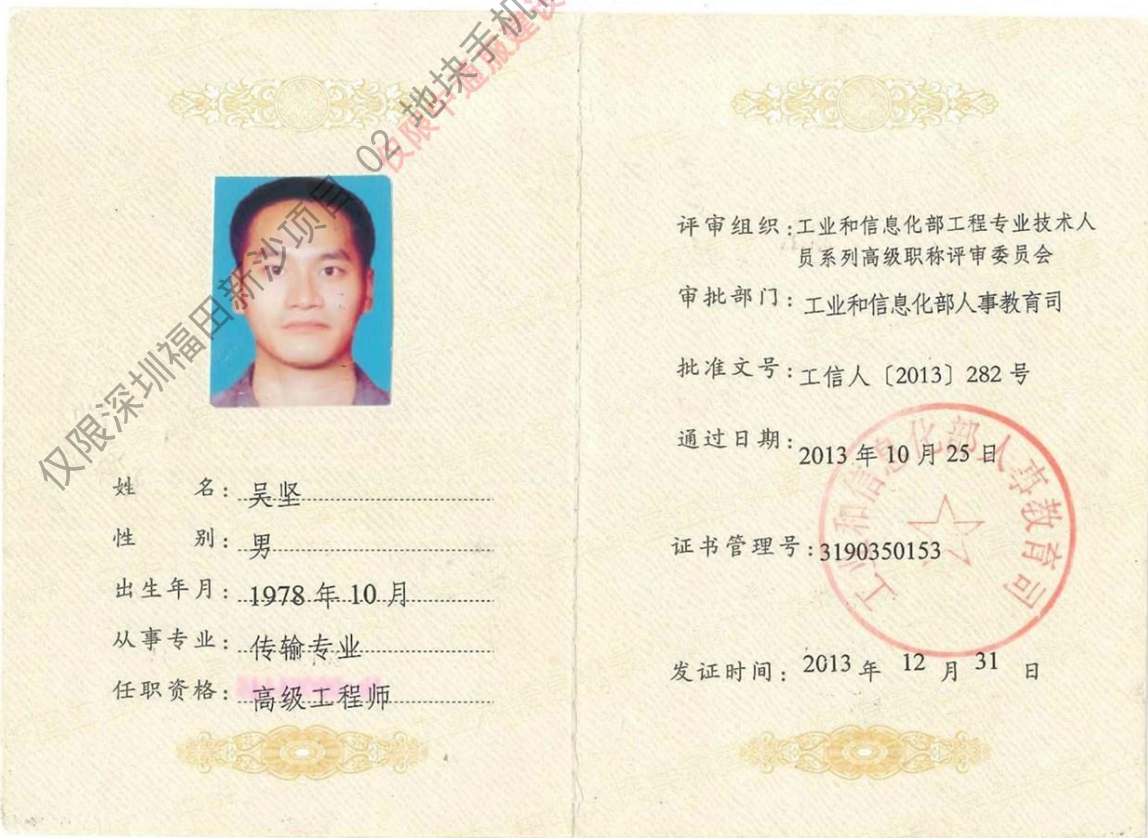 仅限深圳福田新沙项目 02 地块手机
仅限中通服建设
姓名：吴坚
性别：男
出生年月：1978 年 10 月
从事专业：传输专业
任职资格：高级工程师
评审组织：工业和信息化部工程专业技术人
员系列高级职称评审委员会
审批部门：工业和信息化部人事教育司
批准文号：工信人〔2013〕282 号
通过日期：2013 年 10 月 25 日
证书管理号：3190350153
发证时间：2013 年 12 月 31 日
工业和信息化部人事教育司